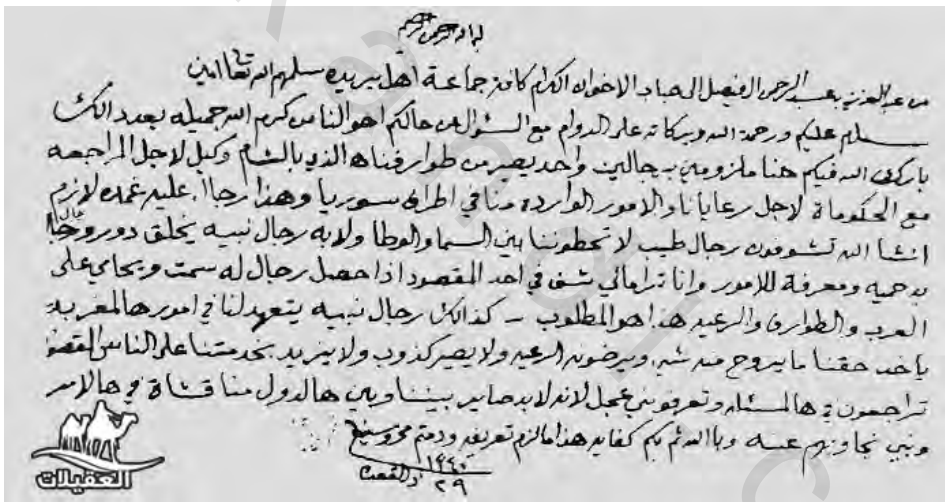 بسم الله الرحمن الرحيم
من عبدالعزيز بن عبدالرحمن الفيصل الى جناب الاخوان الكرام كافة جماعة اهل بريده سلمهم الله تعالى امين
سلام عليكم ورحمة الله وبركاته على الدوام مع السؤال عن حالكم احوالنا من كرم الله جميله بعد
بارك الله فيكم حنا ملزومين برجالين واحد يصير من طوارفنا الذي بالشام وكيل لاجل المراجعه
مع الحكومة لاجل رعايانا والامور الوارده منا في اطراف سوريا وهذا رجال عليه عمده لازم
انشا الله تشوفون رجال طيب لا تحطوننا بين السما والوطا ولابه رجال نبيه يخلق دور
حميه ومعرفة للامور وانا ترا مالي شف في احد المقصود اذا حصل رجال له سمت ويحامي على
العرب والطوارف والرعيه هذا هو المطلوب – كذالك رجال نبيه يتعهد لنا في امور هالمغربيه
ياخذ حقنا ما يروح منه شيء ويرضون الرعيه ولا يصير كذوب ولا يزيد بخدمتنا على الناس المقصود
تراجعون في هالمسئله وتعرفوني عجل لانه لابد صاير بيننا وبين هالدول مناقشاة في هالامر
ونبي نجاوبهم عنه وبالله ثم بكم كفايه هذا مالزم تعريفه ودمتم محروسين
١٣٤٠
٢٩ ذالقعده
العقيلات